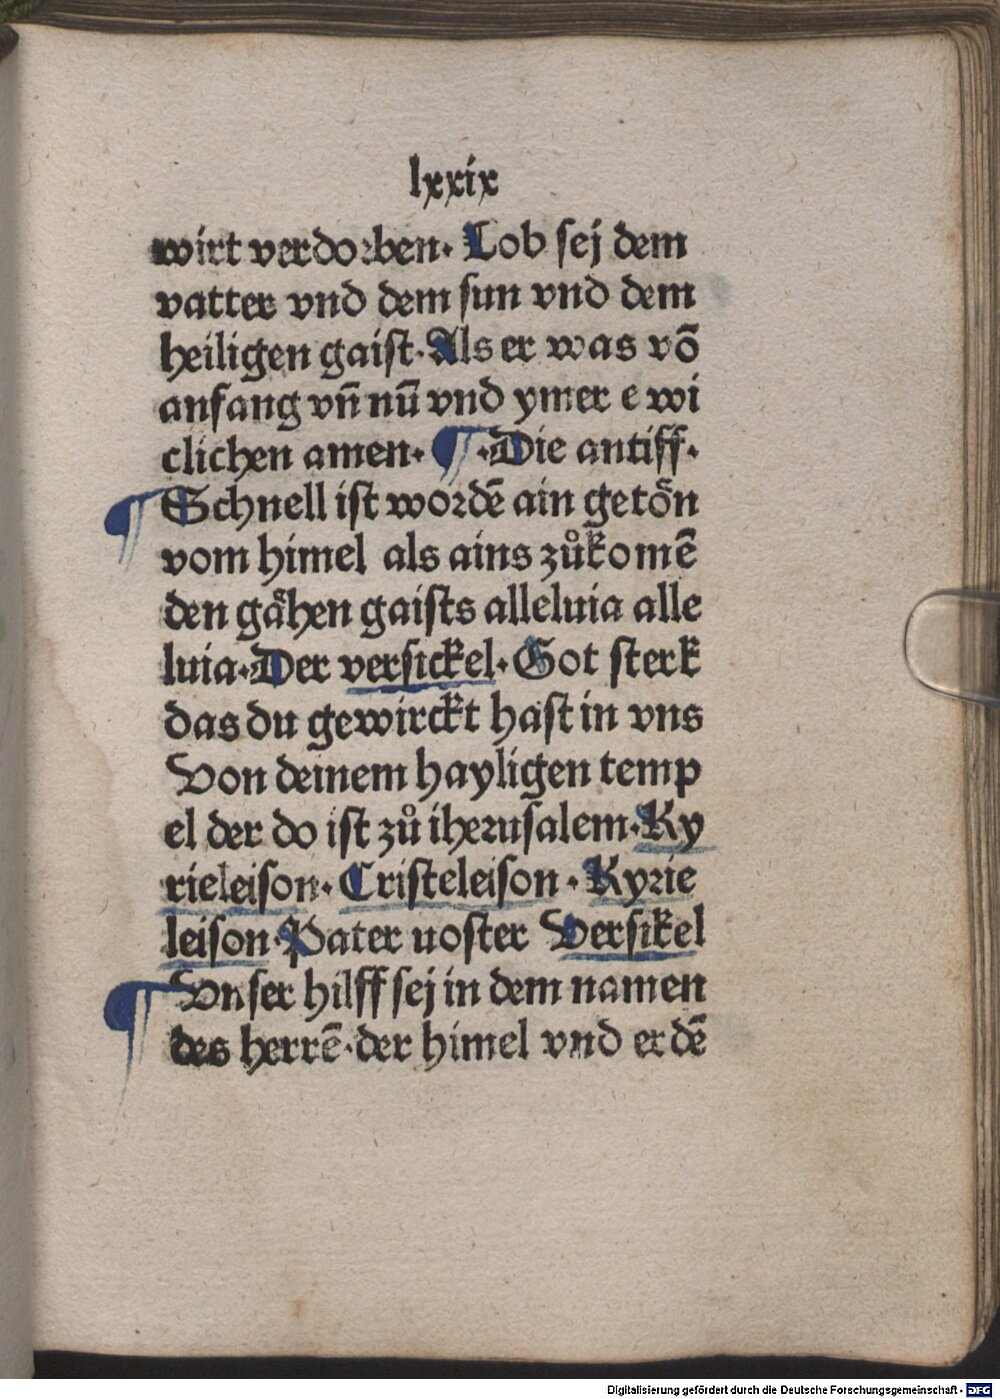 lxxix
wirt verdorben. Lob sej dem
vatter vnd dem sun vnd dem
heiligen gaist. Als er was võ
anfang vn̄ nū vnd ymer e wi
clichen amen. ¶ .Die antiff.
¶ Schnell ist wordē ain getoͤn
vom himel als ains zuͦkomē
den gaͤhen gaists alleluia alle
luia. Der versickel. Got sterk
das du gewirckt hast in vns
Von deinem hayligen temp
el der do ist zuͦ iherusalem. Ky
rieleison. Cristeleison . Kyrie
leison. Pater uoster Versikel
¶ Vnser hilff sej in dem namen
des herrē. der himel vnd erdē
Digitalisierung gefördert durch die Deutsche Forschungsgemeinschaft - DFG